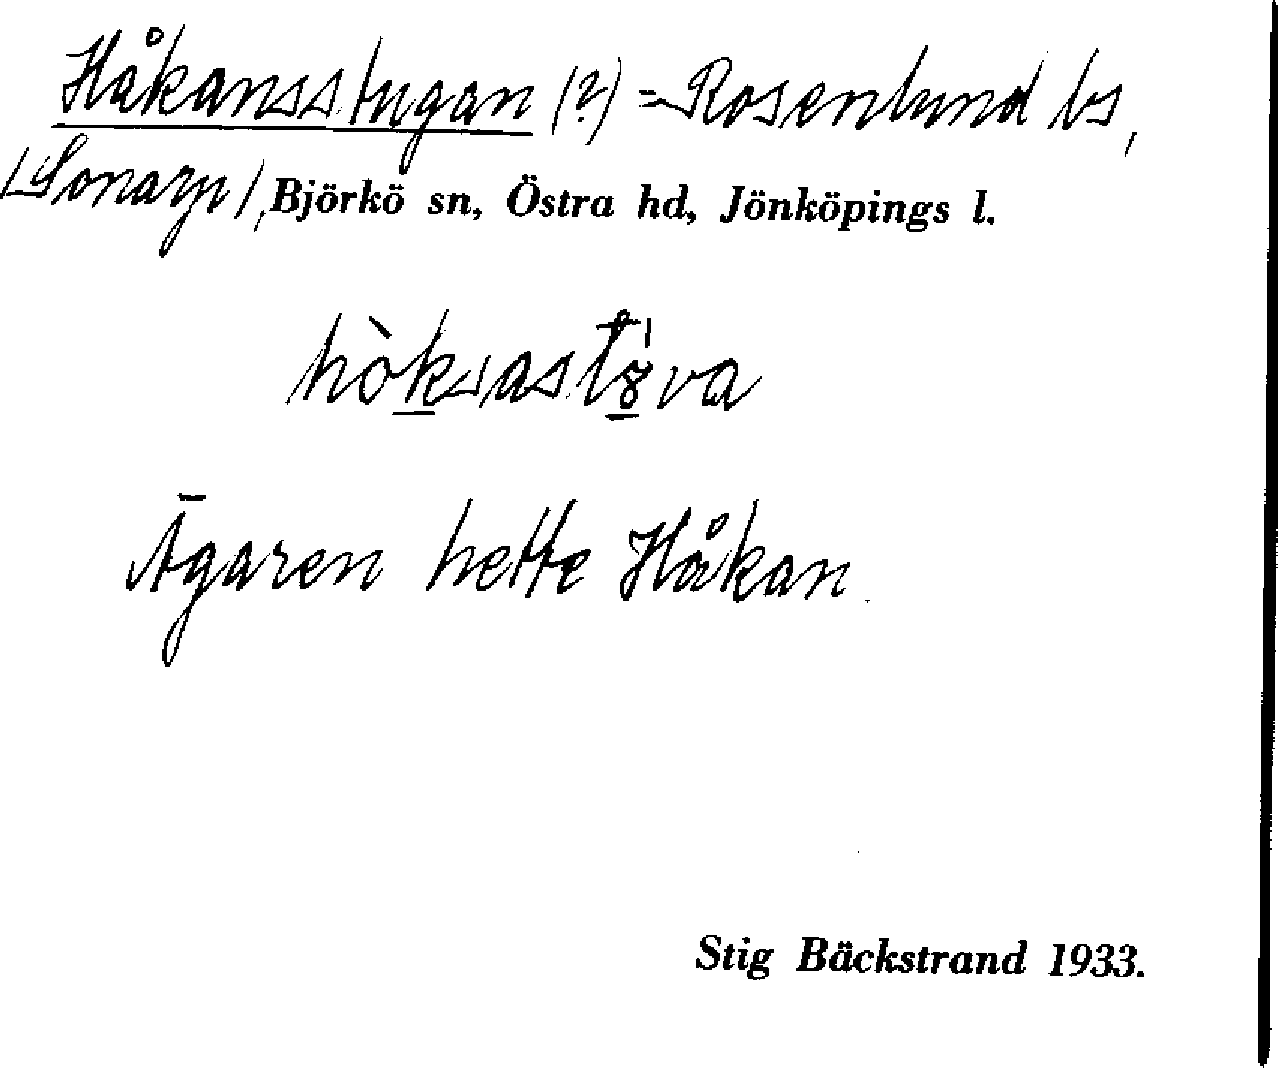 Håkansstugan (?) = Rosenlund bs,
(Sonarp), Björkö sn, Östra hd, Jönköpings l.
Ägaren hette Håkan.
Stig Bäckstrand 1933.